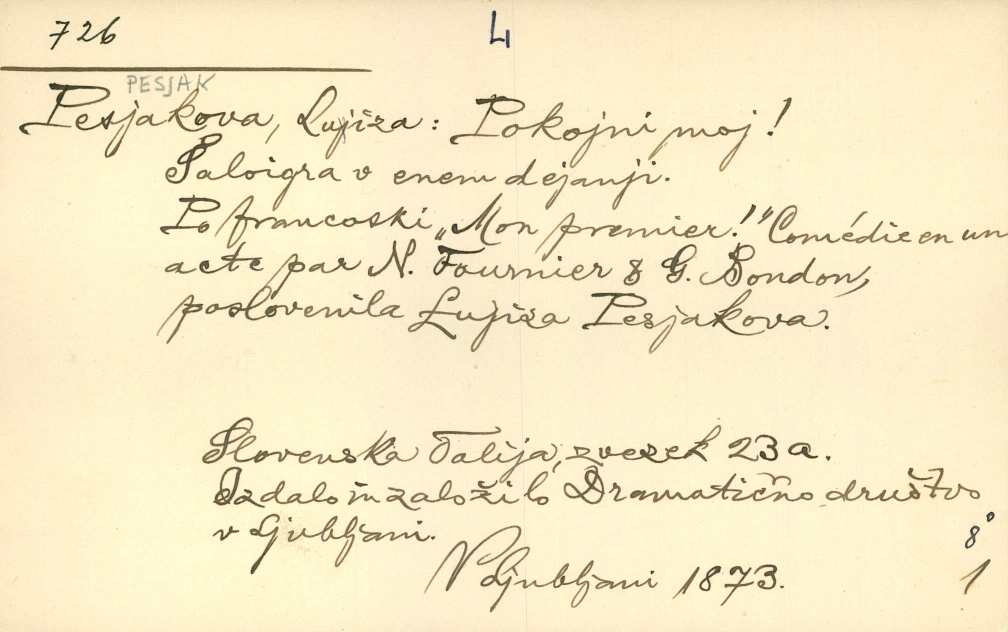 726
L
PESJAK
Pesjakova, Lujiza: Pokojni moj!
Šaloigra v enem dejanji.
Po francoski „Mon premier!" Comédie en un
acte par N. Fournier & G. Bondon,
poslovenila Lujiza Pesjakova.
Slovenska Talija, zvezek 23 a.
Izdalo in založilo Dramatično društvo
v Ljubljani.
V Ljubljani 1873.
8°
1